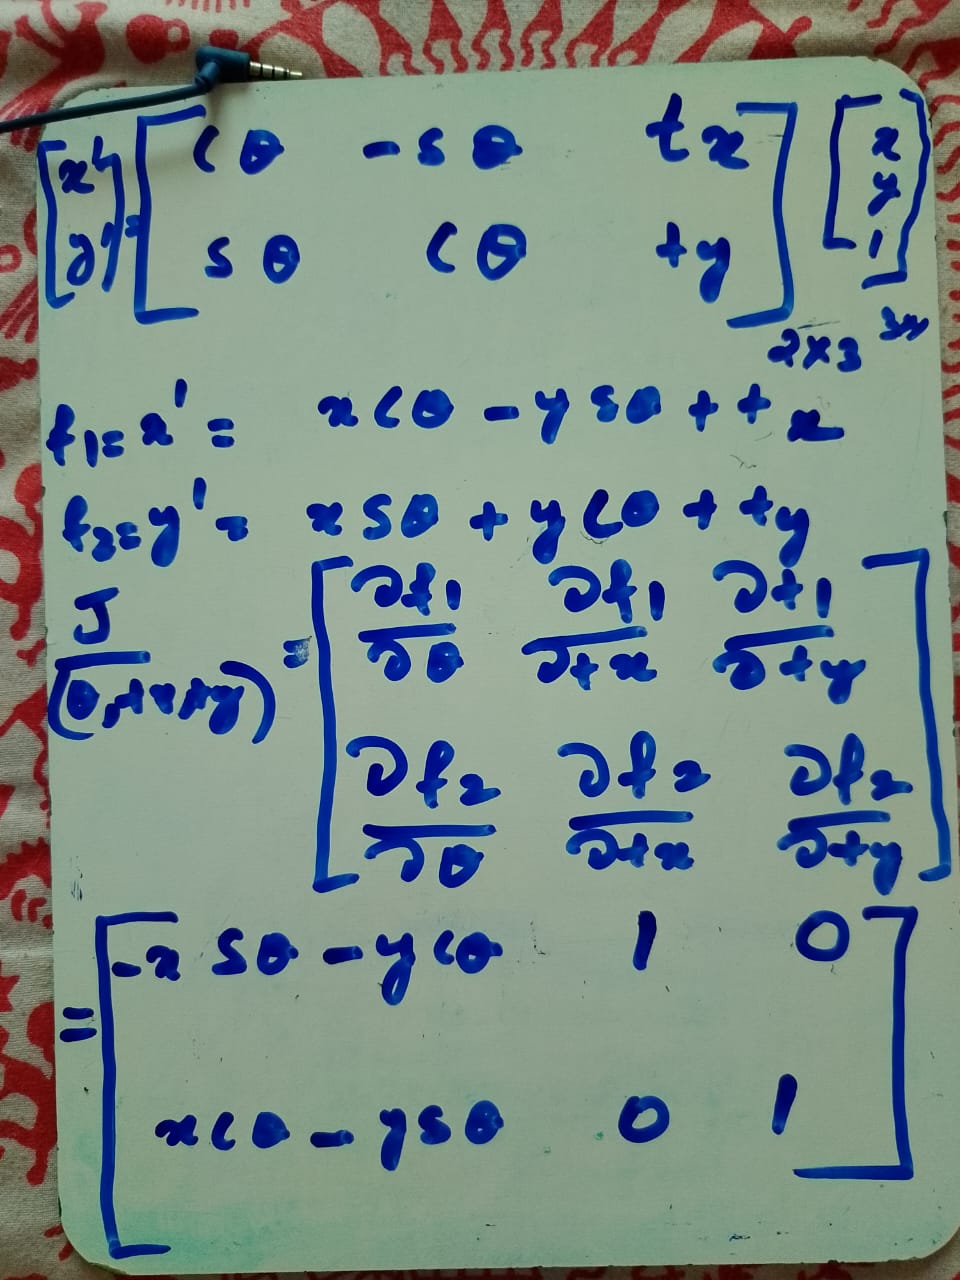 [x'] = [cθ -sθ tx] [x]
[y'] [sθ cθ ty] [y]
[1]
2×3
f1=x'= xcθ - ysθ + tx
f2=y'= xsθ + ycθ + ty
J/(θ,tx,ty) = [∂f1/∂θ ∂f1/∂tx ∂f1/∂ty]
[∂f2/∂θ ∂f2/∂tx ∂f2/∂ty]
= [-xsθ - ycθ 1 0]
[xcθ - ysθ 0 1]